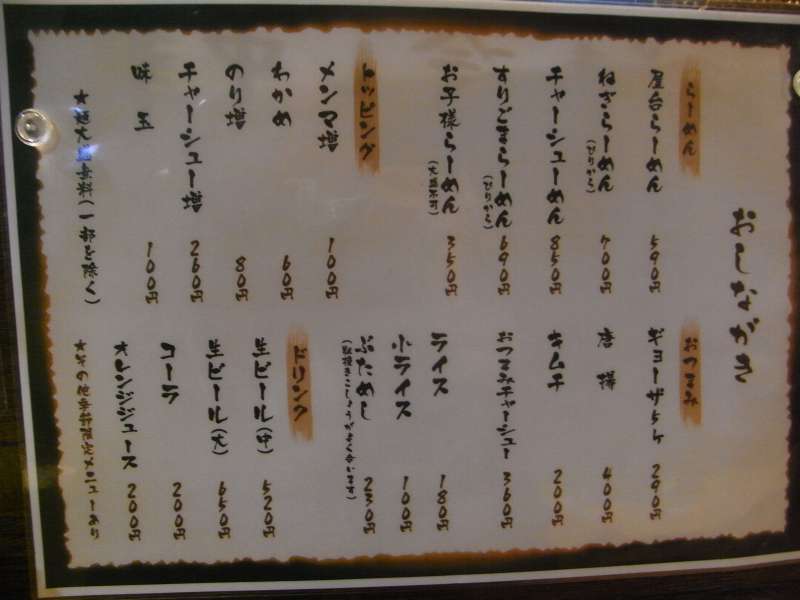 おしながき
らーめん
屋台らーめん 590円
ねぎらーめん(ぴりから) 700円
チャーシューめん 850円
すりごまらーめん(ぴりから) 690円
お子様らーめん(大盛不可) 350円
トッピング
メンマ増 100円
わかめ 60円
のり増 80円
チャーシュー増 260円
味玉 100円
★麺大盛無料(一部を除く)
おつまみ
ギョーザ5ヶ 290円
唐揚 400円
キムチ 200円
おつまみチャーシュー 360円
ライス 180円
小ライス 100円
ぶためし 230円
(粗挽きこしょうがよく合います)
ドリンク
生ビール(中) 520円
生ビール(大) 650円
コーラ 200円
オレンジジュース 200円
★その他季節限定メニューあり